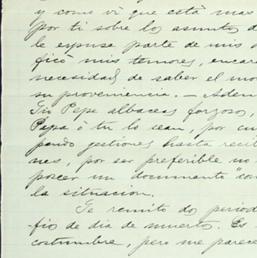 y como vi que está mas
por ti sobre los asuntos d
le expuse parte de mis
ficó mis temores, encare
necesidad de saber el mo
su proveniencia. — Adem
Tío Pepe albacea forzoso,
Papá ó tu lo sean, por cu
gestiones hasta reci
nes, por ser preferible no
poseer un documento "con
la situacion.
Te remito dos period
fio de dia de muerto. Es
costumbre, pero me parece